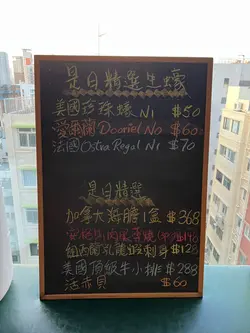 是日精選生蠔
美國珍珠蠔 N1 $50
愛爾蘭 Dooriel No $60
法國 Ostra Regal N1 $70
是日精選
加拿大海膽1盒 $368
紐西蘭 刺身 $128
美國頂級牛小排 $288
活赤貝 $60